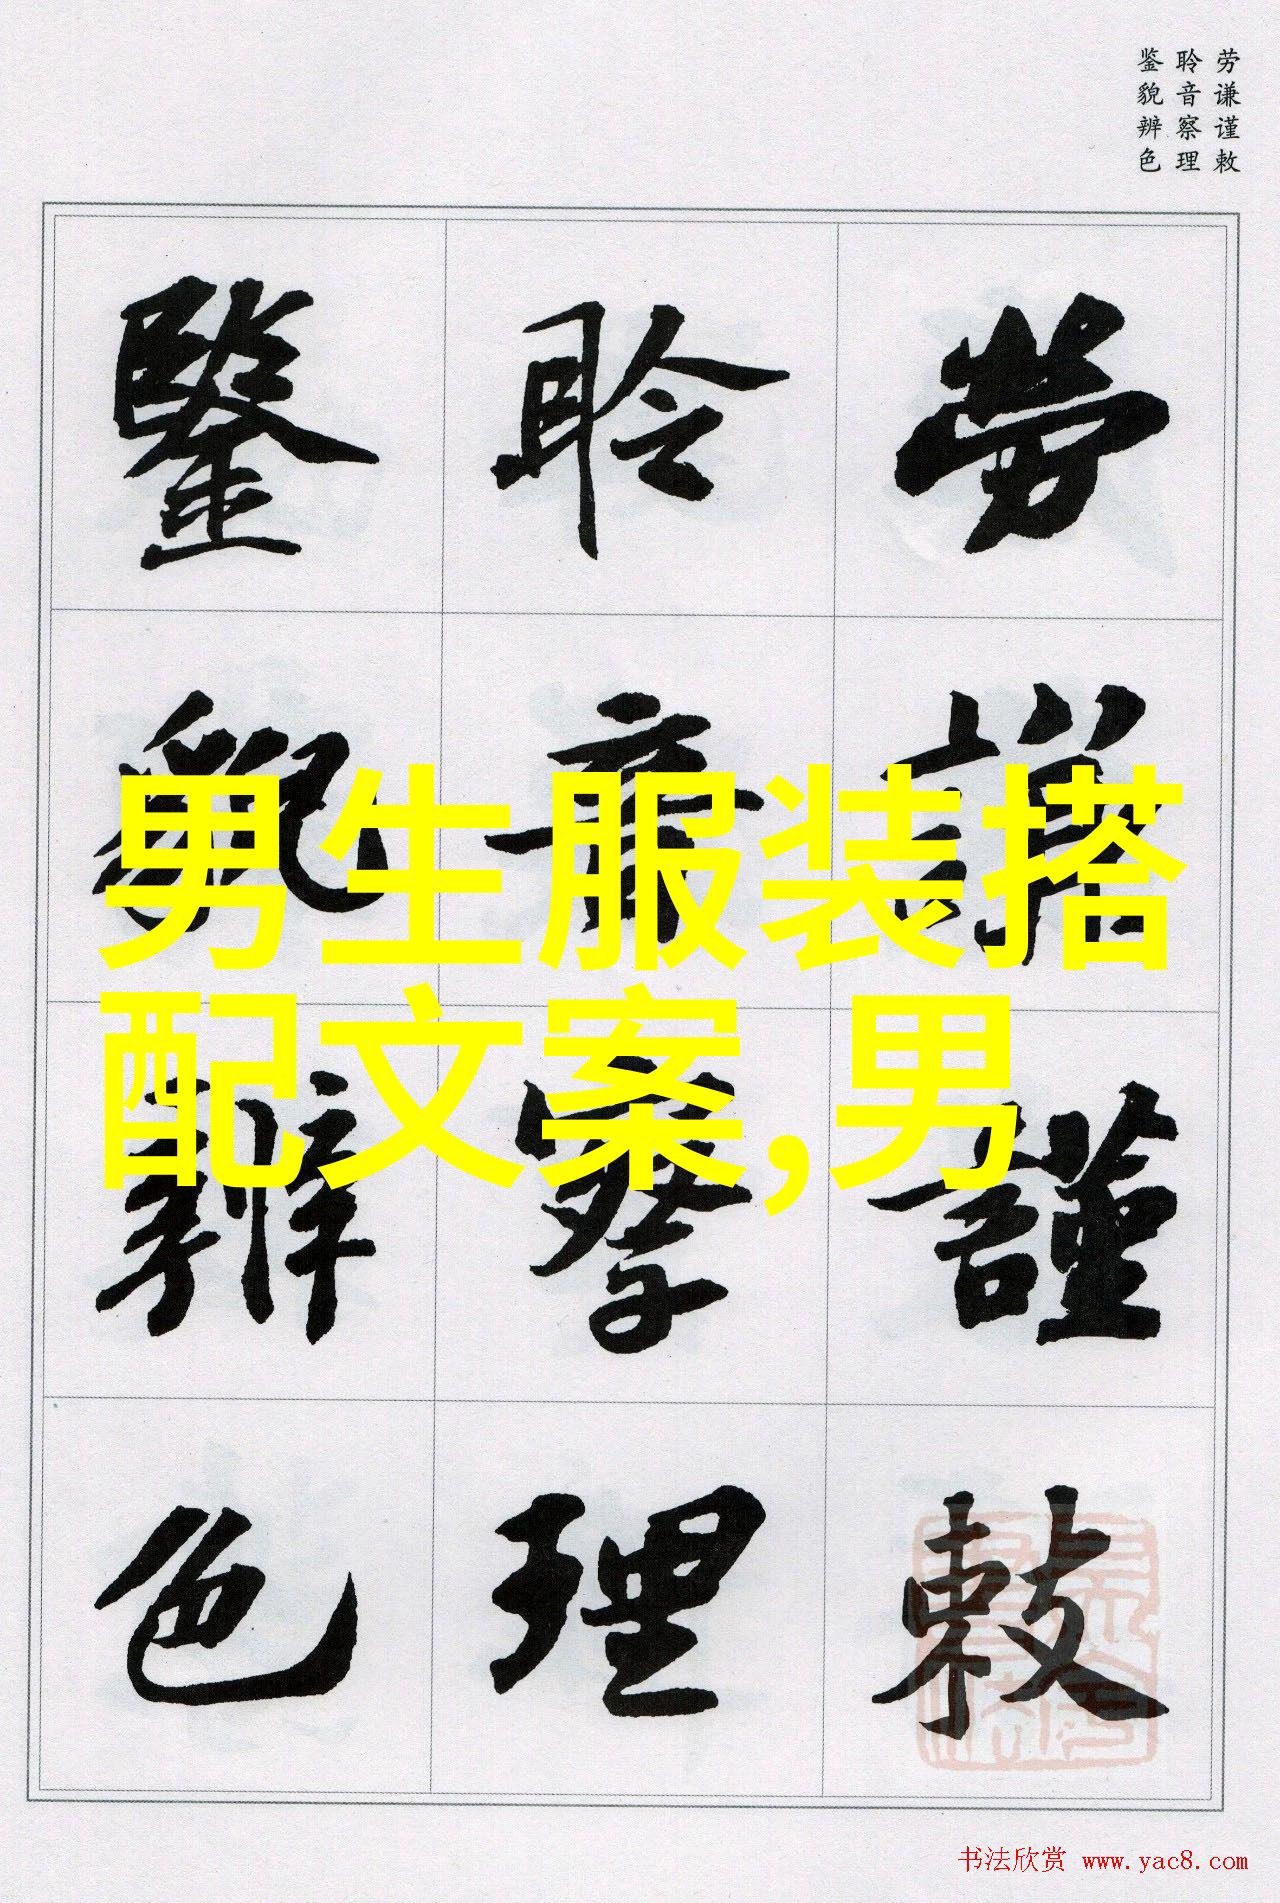 劳谦谨敕
聆音察理
鉴貌辨色
勞謙謹敕
聆音察理
鑒貌辨色
男生服装搭
配文案,男
书法欣赏 www.yac8.com